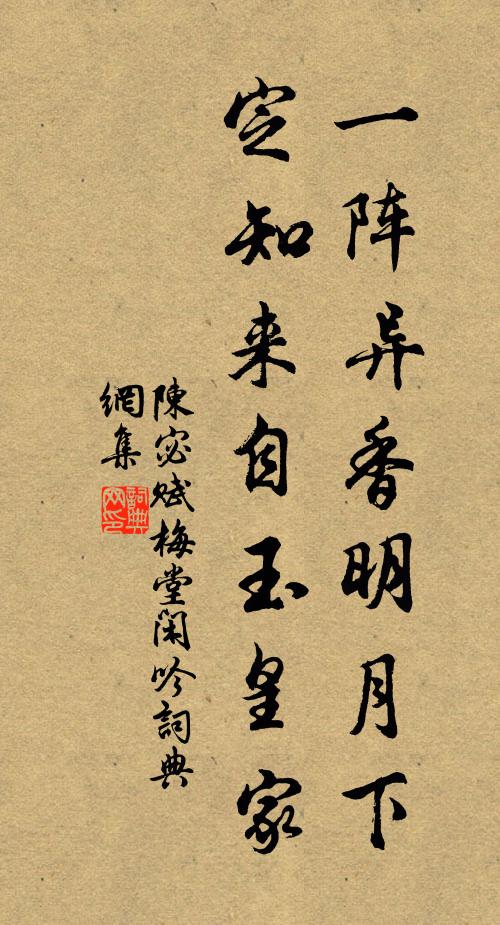 一阵异香明月下
定知来自玉皇家
陳宓赋梅堂闲吟詞典
網集
詞典
网印